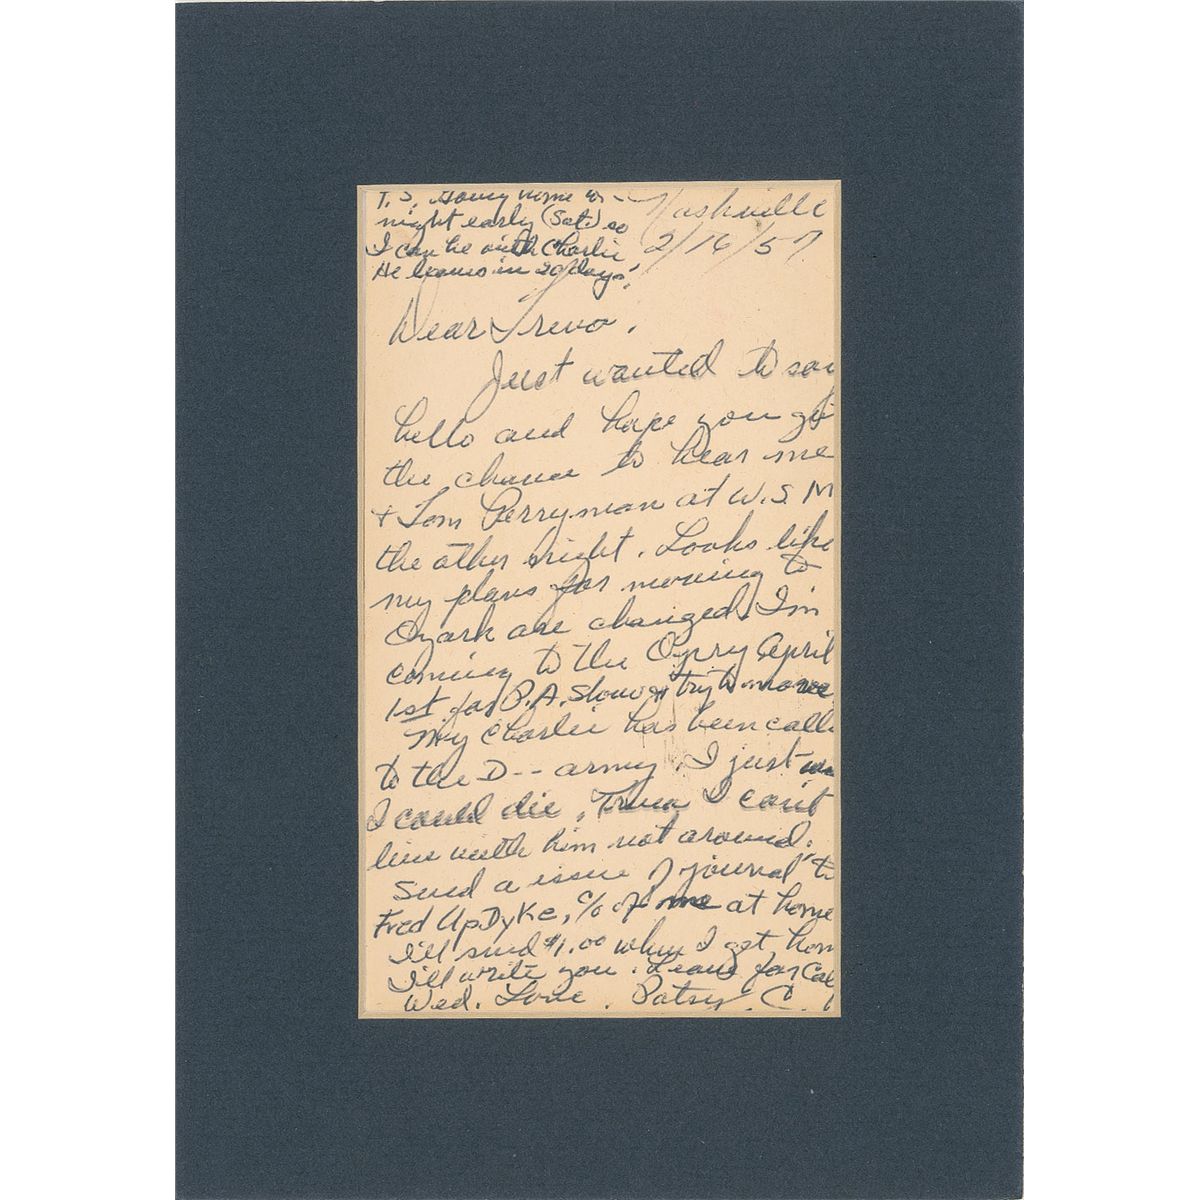 T. S. Going home to-
night early (Sat.) so
I can be with Charlie
He leaves in 20 days!
Nashville
2/16/57
Dear Treva,
Just wanted to say
hello and hope you got
the chance to hear me
+ Tom Perryman at W.S.M
the other night. Looks like
my plans for moving to
Ozark are changed. I'm
coming to the Opry April
1st for P.A. Show & try to move
My Charlie has been call
to the D-- army. I just
I could die, Treva I can't
live with him not around.
Send a issue of "journal" to
Fred ApDyKe, c/o of me at home
I'll send $1.00 when I get hom
I'll write you. Leave for Cal
Wed. Love. Patsy. C.